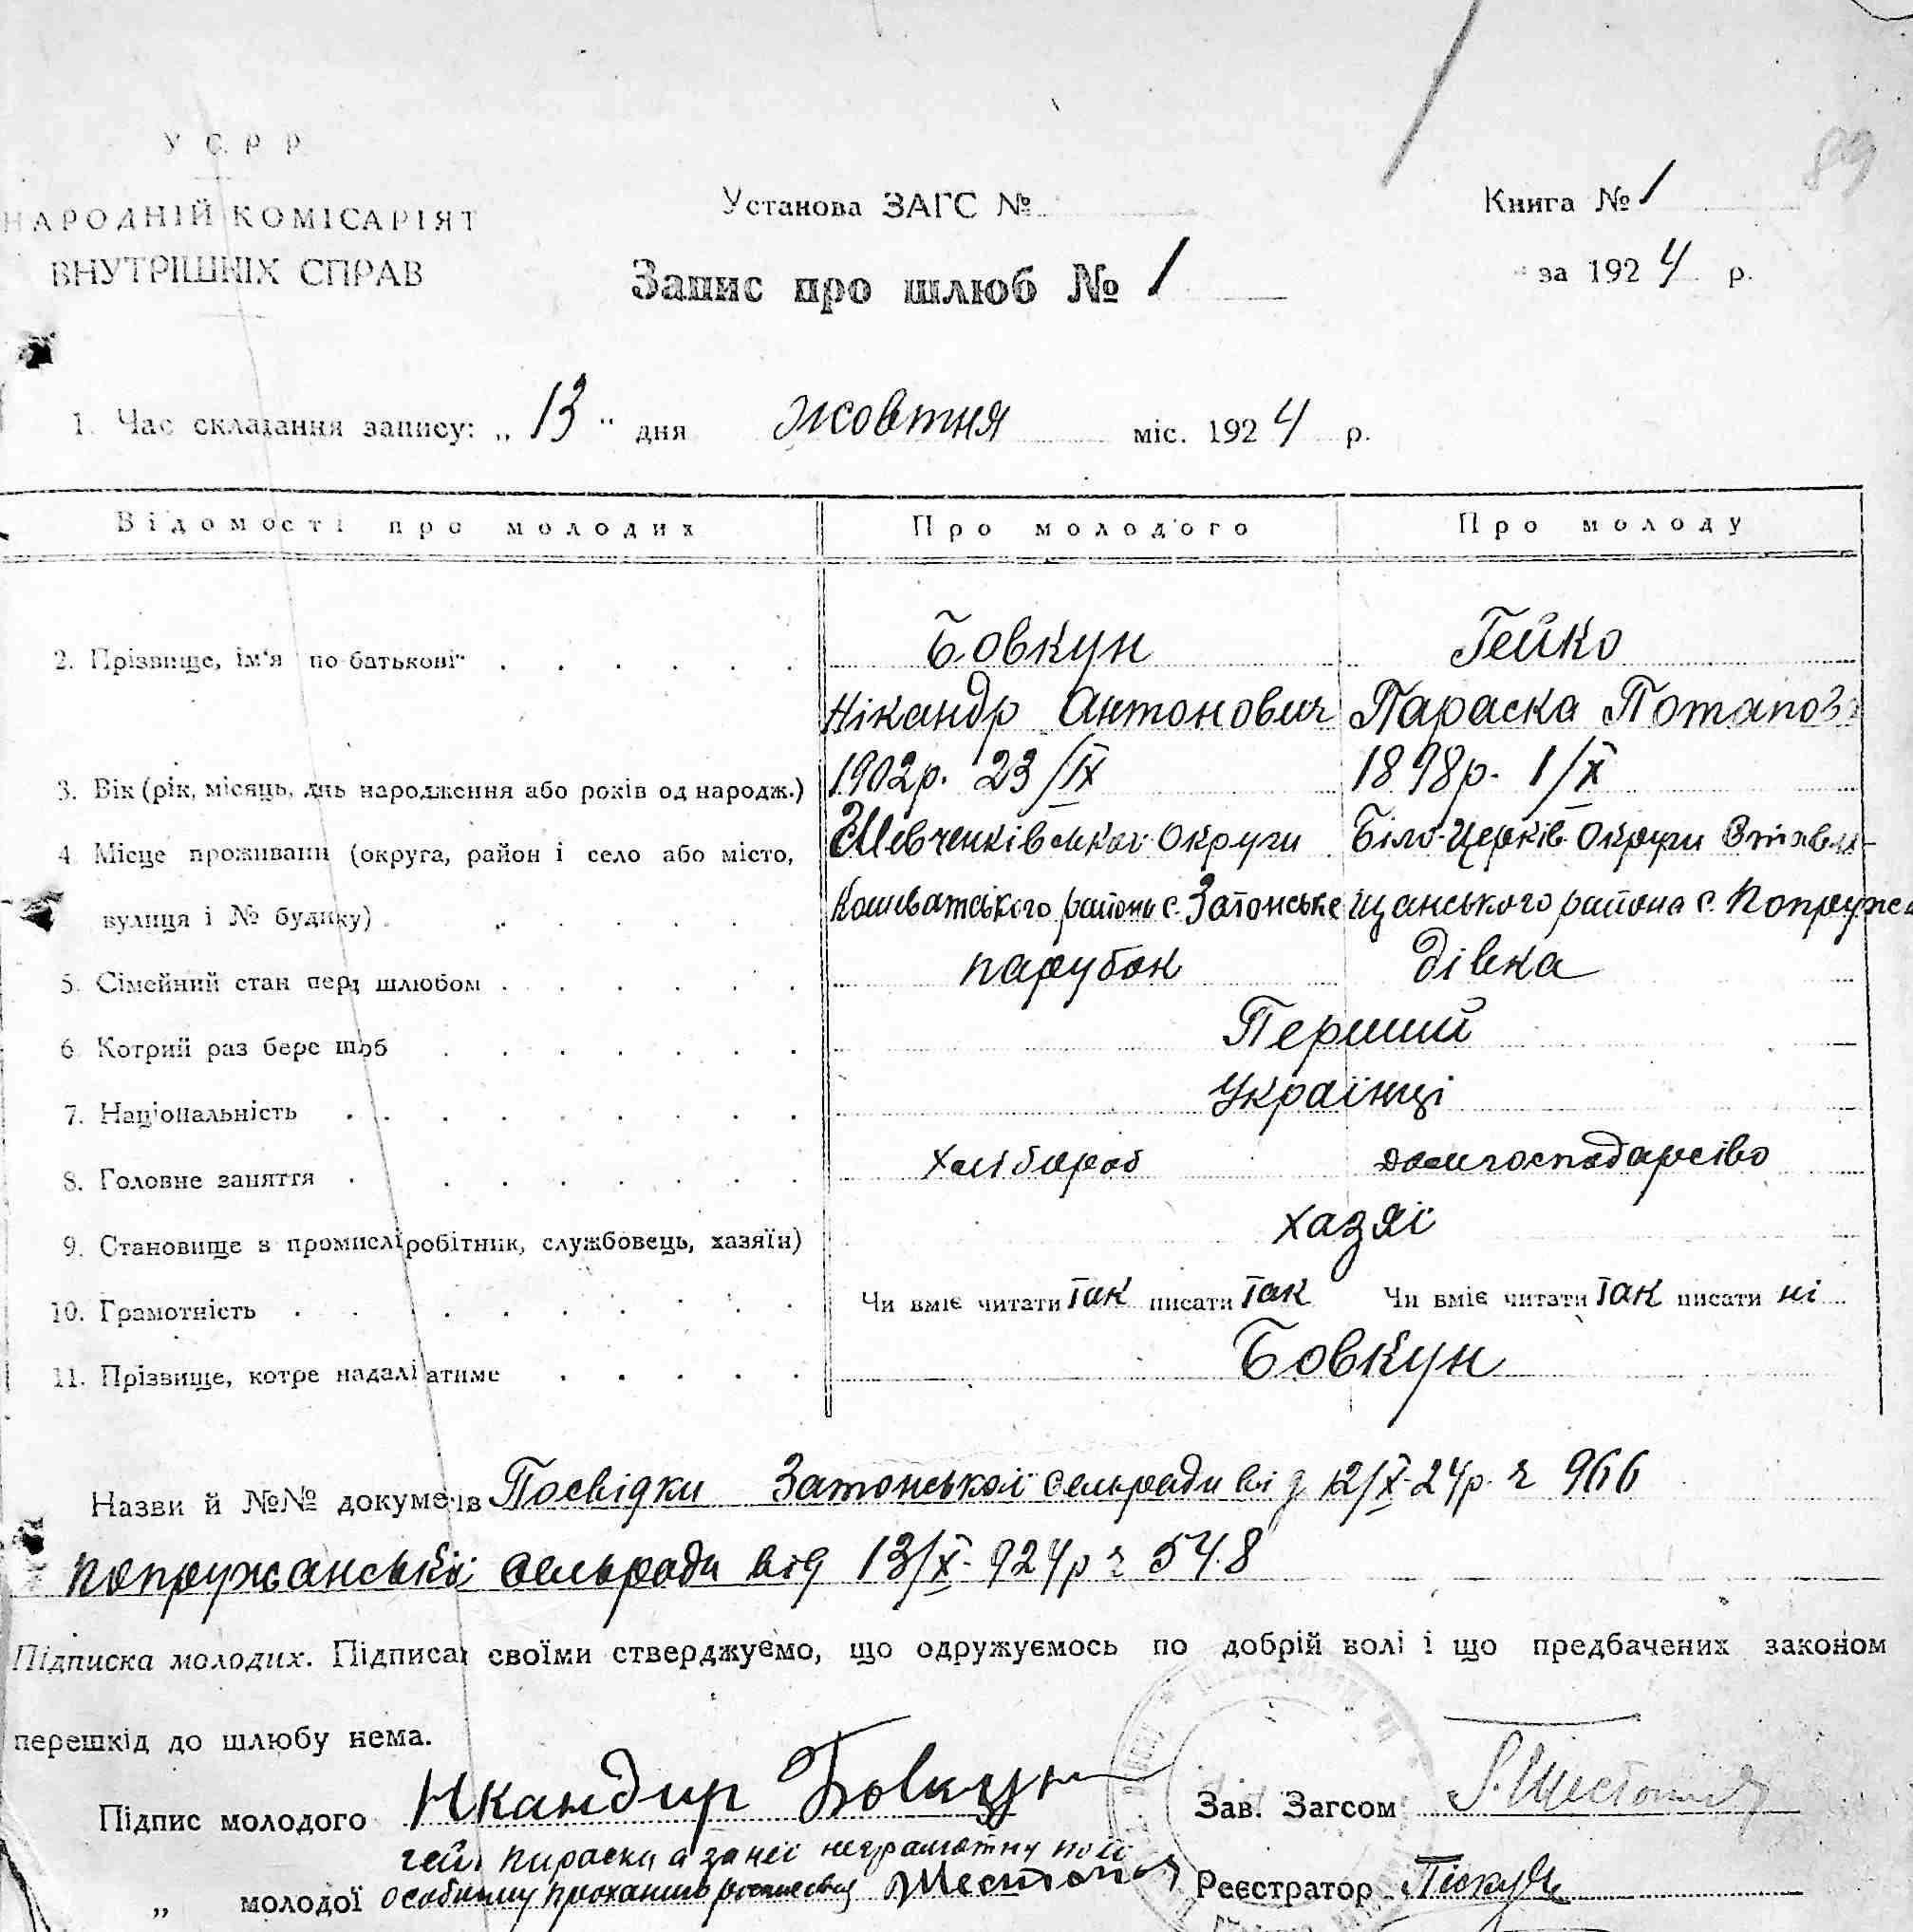 У С Р Р
НАРОДНІЙ КОМІСАРІЯТ
ВНУТРІШНІХ СПРАВ
Установа ЗАГС №
Запис про шлюб № 1
Книга № 1
за 1924 р.
89
1. Час складання запису: „ 13 " дня жовтня міс. 1924 р.
Відомості про молодих Про молодого Про молоду
2. Прізвище, ім'я по-батькові Бовкун Гейко
Нікандр Антонович Параска Потапов
3. Вік (рік, місяць, днь народження або років од народж.) 1902р. 23/IX 1898р. 1/X
4 Місце проживанн (округа, район і село або місто, Шевченківськой Округи Біло-Церків. Округи Стави-
вулиця і № будинку) Кошеватського району с. Затонське щанського района с. Попружн
5. Сімейний стан перд шлюбом парубок дівка
6 Котрий раз бере шюб Перший
7. Національність Українці
8. Головне заняття хлібороб домгосподарство
9. Становище в промислі робітник, службовець, хазяїн) хазяї
10. Грамотність Чи вміє читати так писати так Чи вміє читати так писати ні
11. Прізвище, котре надалі атиме Бовкун
Назви й №№ докуме ів Посвідки Затонської сельради від 12/X-24р. ч 966
Попружанській сельради від 13/X-924р ч 548
Підписка молодих. Підписа своїми стверджуємо, що одружуємось по добрій волі і що предбачених законом
перешкід до шлюбу нема.
Підпис молодого Нкандир Бовкун Зав. Загсом
гей. Параски а за неї неграмотну по її
„ молодої особистому проханню росписався Реєстратор